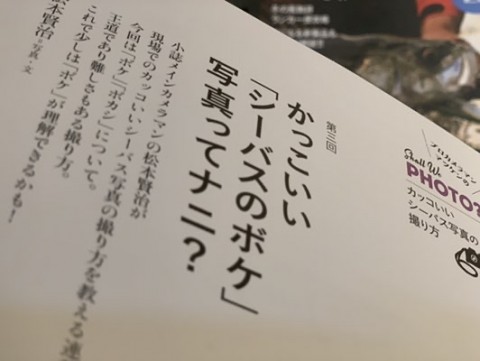 プロカメラマン
マツケンの
Shall We
PHOTO?
カッコいい
シーバス写真の
撮り方
第三回
かっこいい
「シーバスのボケ」
写真ってナニ?
小誌メインカメラマンの松本賢治が
現場でのカッコいいシーバス写真の撮り方を教える連
今回は「ボケ」「ボカシ」について。
王道であり難しさもある撮り方。
これで少しは「ボケ」が理解できるかも!
松本賢治=写真・文